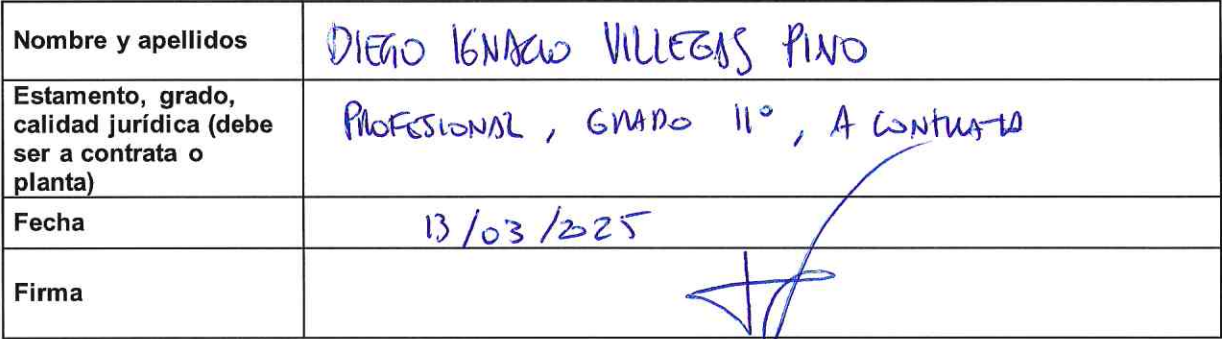 Nombre y apellidos
DIEGO IGNACIO VILLEGAS PINO
Estamento, grado,
calidad jurídica (debe
ser a contrata o
planta)
PROFESIONAL, GRADO 11°, A CONTRATA
Fecha
13/03/2025
Firma